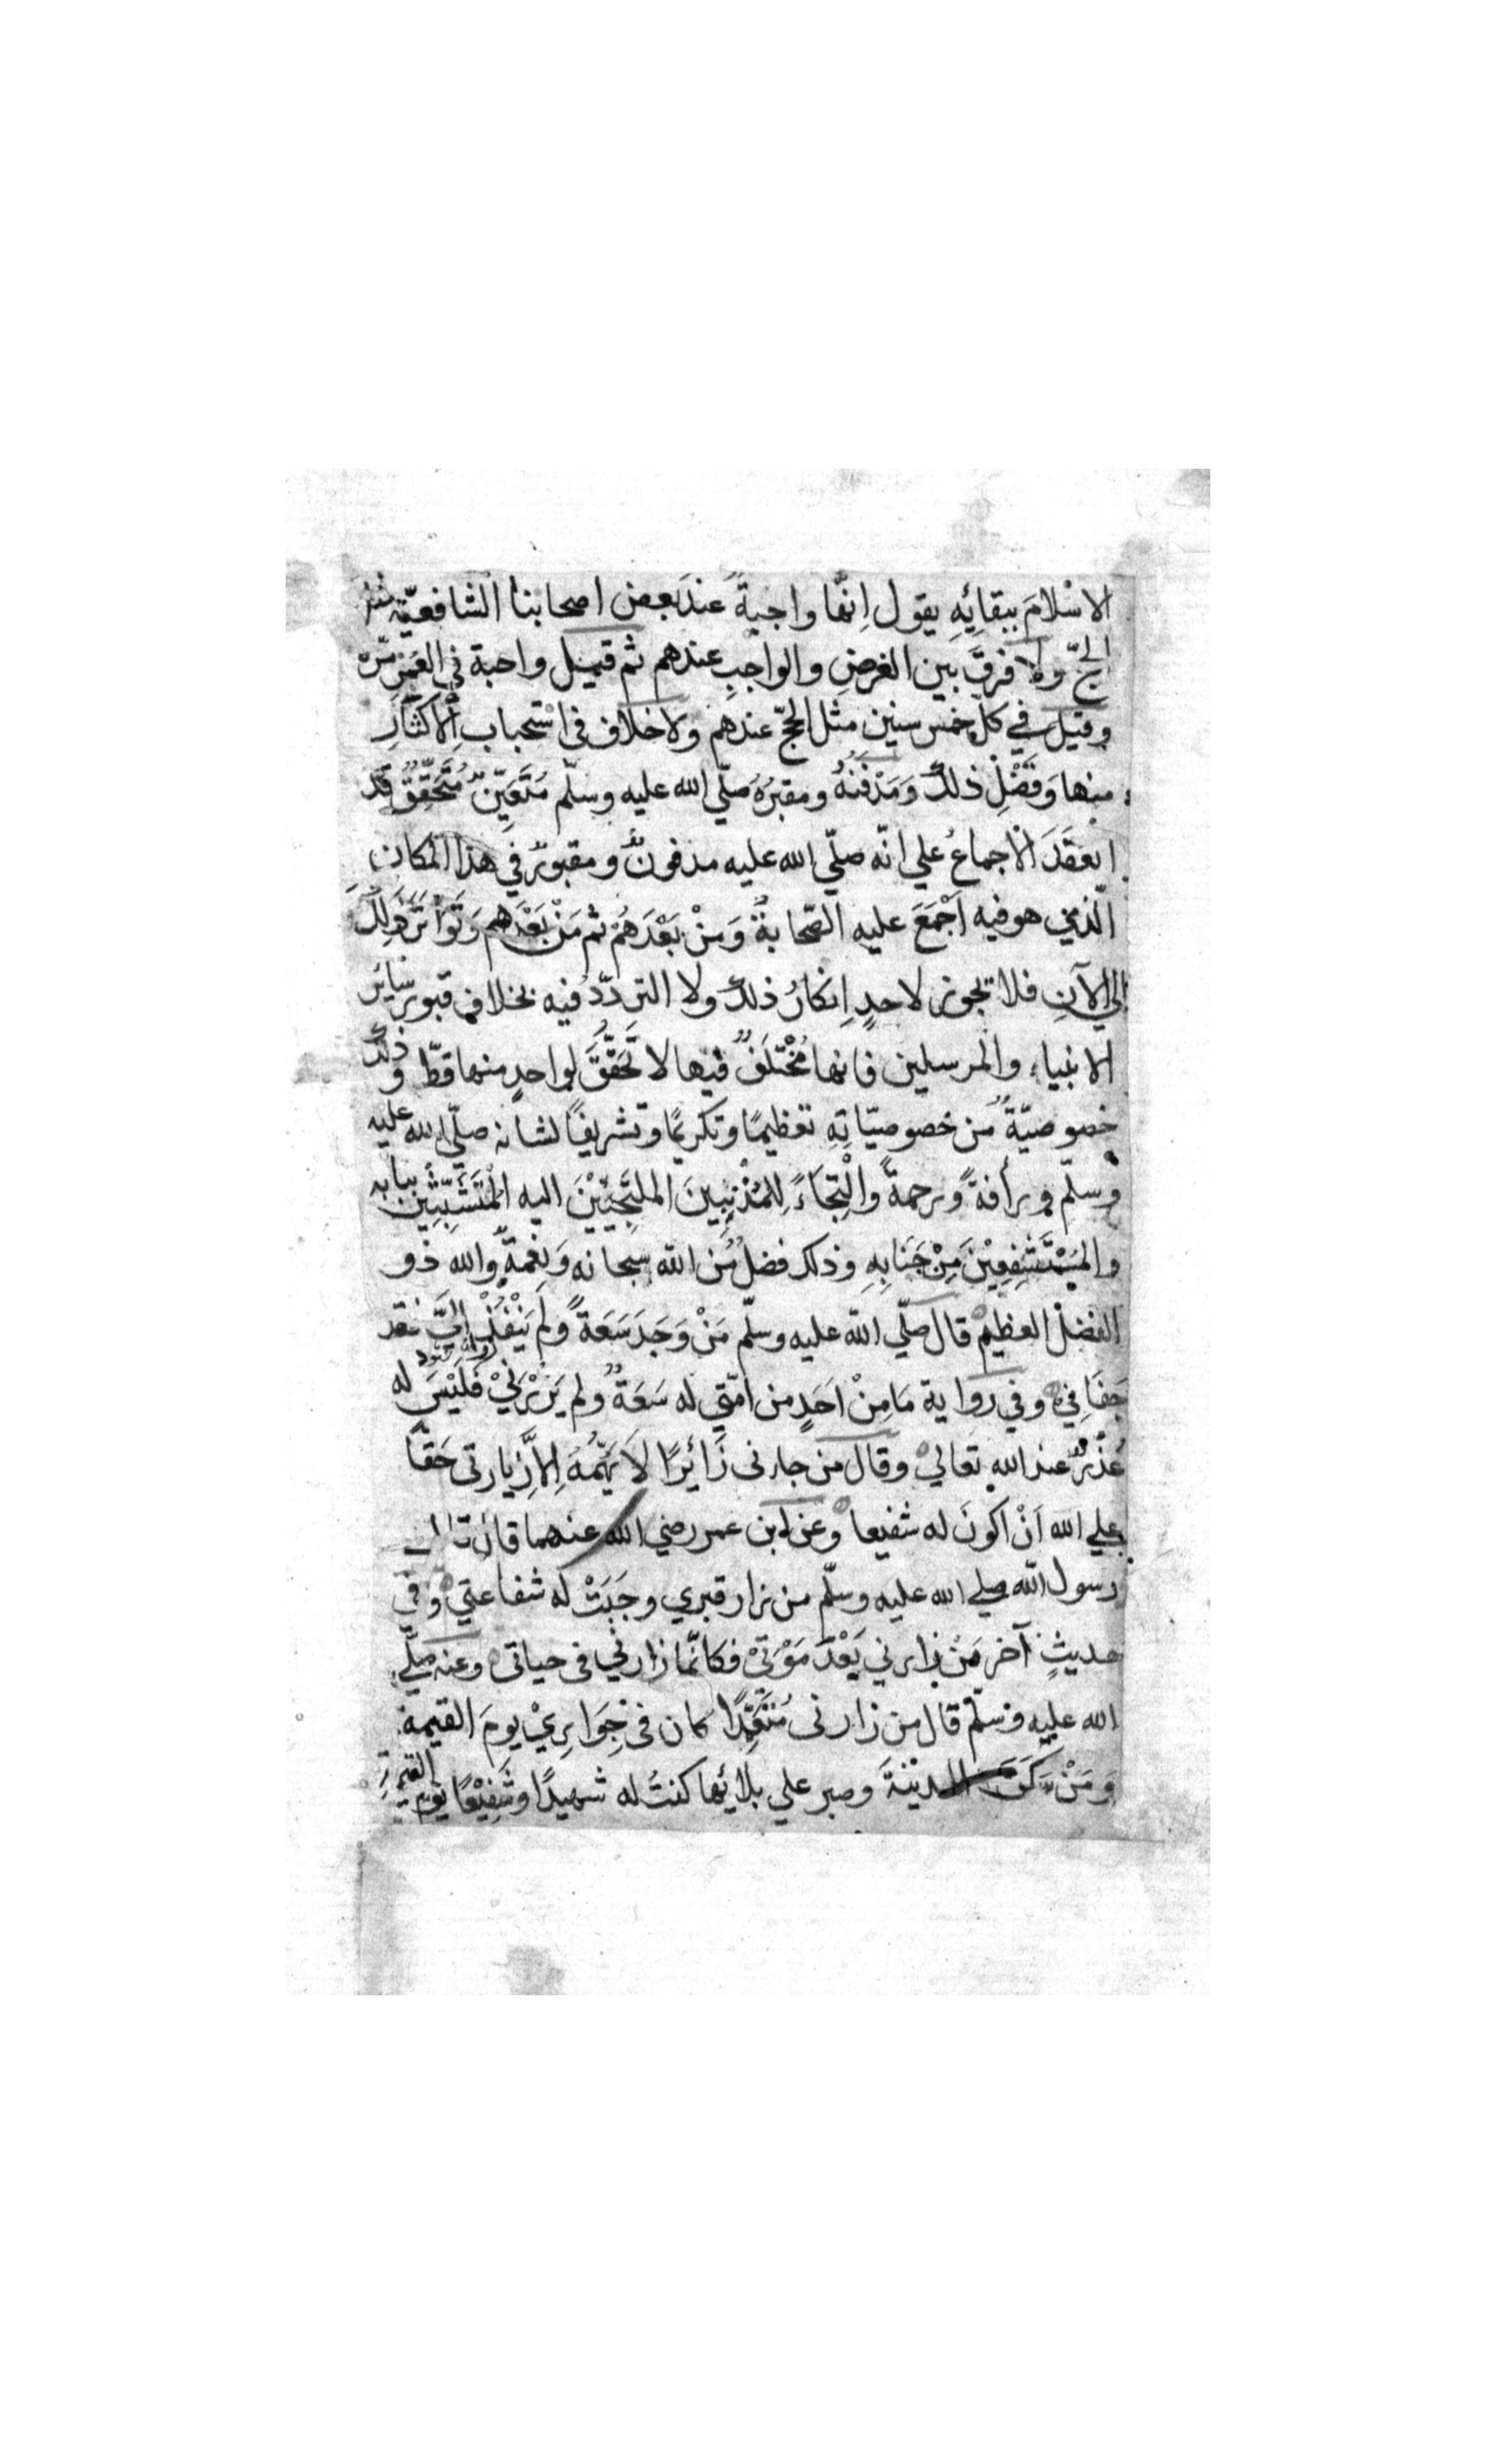 الاسْلامَ ببقائِهِ يقول اِنهَّا واجبةً عندَ بعض اصحابنا الشافعيّة مثل
الحجّ ولا فرقَ بين الفرضِ والواجبِ عندهم ثم قيل واجبة في العمر مرّة
وقيل في كلّ خمس سنين مثل الحجّ عندهم ولا خلاف في اسْتحباب الاكثارِ
منها وَفَضْلِ ذلك وَمَدْفَنُهُ ومقبرُهُ صلّي الله عليه وسلّم مُتَعَيِّنٌ مُتَحَقِّقٌ قَدْ
انعقَدَ الاجماعُ علي انّه صلّي الله عليه مدفونٌ ومقبورٌ في هذا المكان
الّذي هو فيه اَجْمَعَ عليه الصّحابةُ وَمَنْ بَعْدَهُمْ ثم مَنْ بَعْدَهم وَتَوَاتَرَ ذلك
الي الآنِ فلا تجوز لاحدٍ اِنكارُ ذلك ولا التردّدُ فيه بخلاف قبور سائر
الانبياء والمرسلين فانها مُخْتَلَفٌ فيها لا تَحَقُّقَ لواحدٍ منها قطّ وذلك
خصوصيّةٌ من خصوصيّاتِهِ تعظيمًا وتكريمًا وتشريفًا لشانه صلّي الله عليه
وسلّم ورأفةً ورحمةً والْتِجَاءً لِلمُذْنِبِينَ الملتَجِئِيْنَ اليه الْمُتَشَبِّثِيْنَ ببابه
والمُسْتَشْفِعِيْنَ مِنْ جَنَابِهِ وذلك فضلٌ مّن الله سبحانه وَنِعْمَةٌ والله ذو
الفضل العظيم قال صلّي الله عليه وسلّم مَنْ وَجَدَ سَعَةً ولَمْ يَنْفُذْ اِلَيَّ فقد
جَفَانِي وفي رواية مَا مِنْ اَحَدٍ من امّتي له سَعَةٌ ولم يَزُرْنِيْ فَلَيْسَ له
عُذْرٌ عند الله تعاليْ وقال من جاءنى زَائِرًا لاَ يَهُمُّهُ اِلاَّ زيارتى حَقًّا
علي الله اَنْ اكونَ له شفيعا وعن ابن عمر رضي الله عنهما قال قال
رسول الله صلي الله عليه وسلّم من زار قبري وجَبَتْ له شفاعتي وفي
حديثٍ آخر مَنْ زارني بَعْدَ مَوْتِيْ فكانّما زارنيْ في حياتي وعنه صلّي
الله عليه وسلّم قال من زارنى مُتَعَمِّدًا كان فى جِوَارِيْ يومَ القيمة
وَمَنْ سَكَنَ المدينةَ وصبر علي بلائها كنتُ له شهيدًا وشَفِيْعًا يومَ القيمةِ